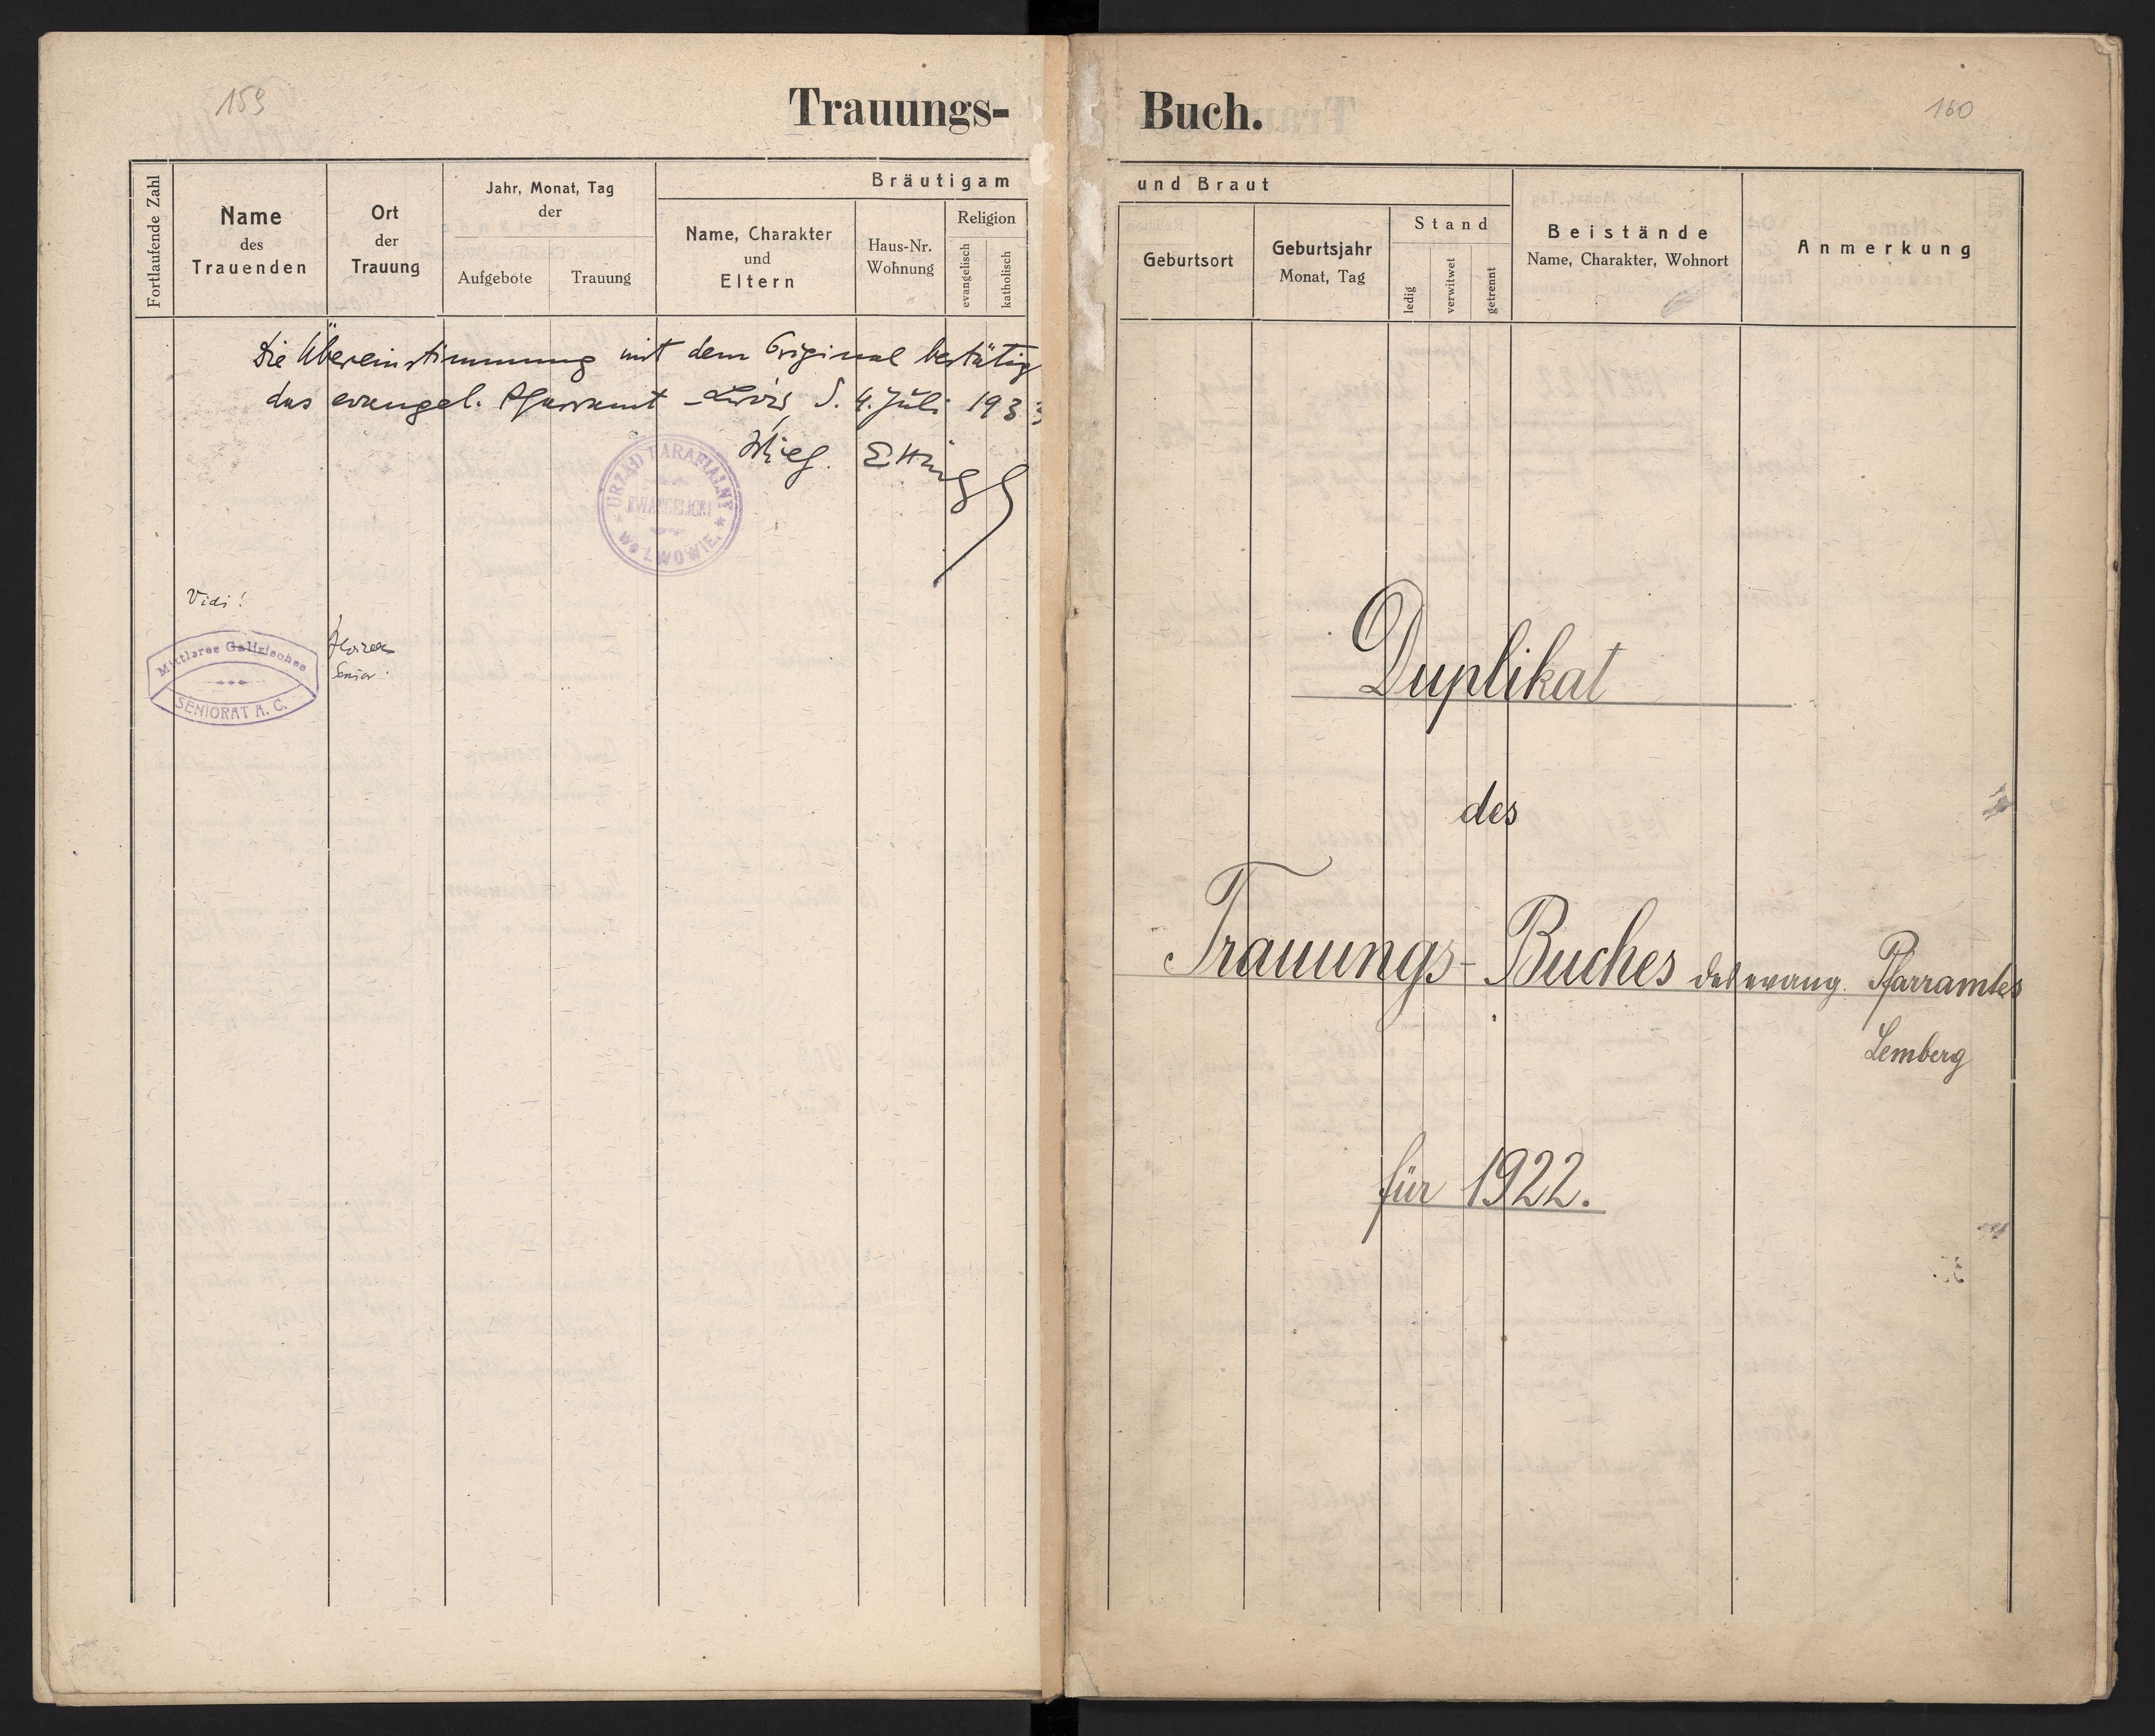 159
Trauungs-
Fortlaufende Zahl
Name
des
Trauenden
Ort
der
Trauung
Jahr, Monat, Tag
der
Aufgebote
Trauung
Bräutigam
Name, Charakter
und
Eltern
Haus-Nr.
Wohnung
Religion
evangelisch
katholisch
Die Übereinstimmung mit dem Original bestätig
das evangel. Pfarramt Lwów, d. 4. Juli 1933
URZĄD PARAFIALNY
EWANGELICKI
WE LWOWIE.
Vidi!
Mittleres Galizisches
SENIORAT A. C.
Senior.
160
Buch.
und Braut
Geburtsort
Geburtsjahr
Monat, Tag
Stand
ledig
verwitwet
getrennt
Beistände
Name, Charakter, Wohnort
Anmerkung
Duplikat
des
Trauungs-Buches des evang. Pfarramtes
Lemberg
für 1922.